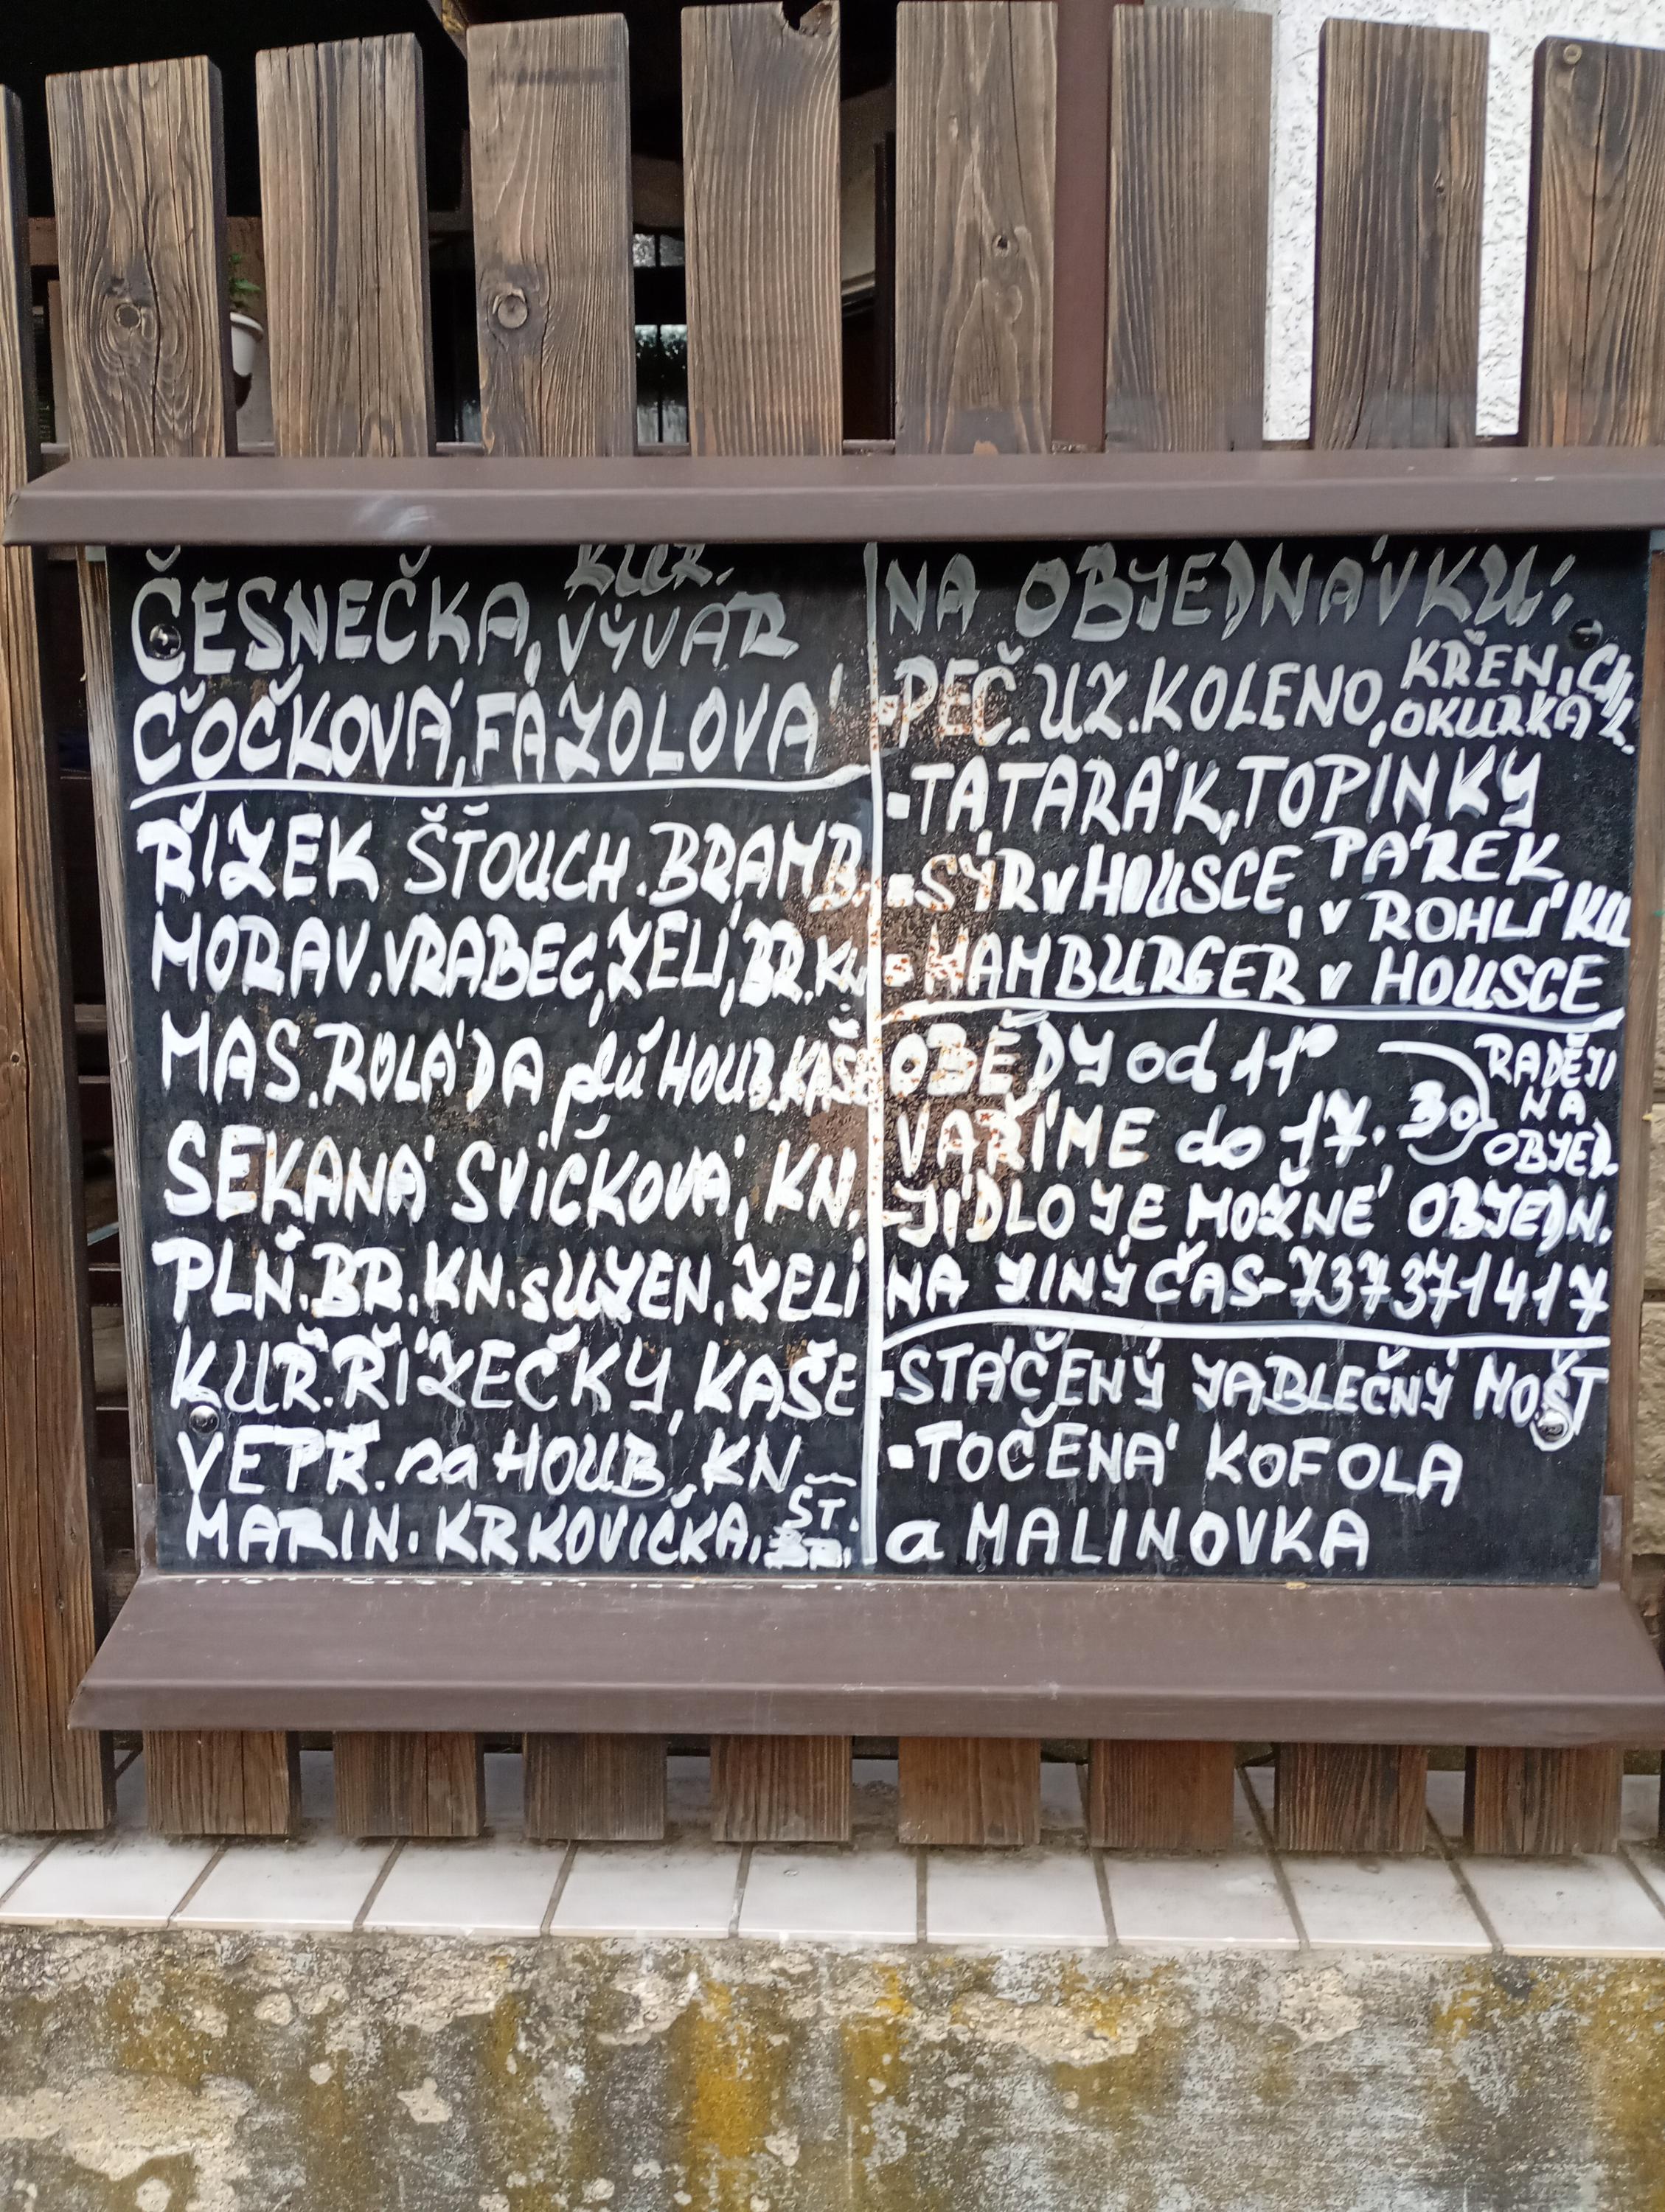 ČESNEČKA, KUR. VÝVAR
ČOČKOVÁ, FAZOLOVÁ
ŘÍZEK ŠŤOUCH. BRAMB.
MORAV. VRABEC, ZELÍ, BR. KN.
MAS. ROLÁDA plň HOUB. KAŠE
SEKANÁ SVÍČKOVÁ, KN.
PLŇ. BR. KN. s UZEN. ZELÍ
KUŘ. ŘÍZEČKY, KAŠE
VEPŘ. na HOUB., KN
MARIN. KRKOVIČKA, ŠŤ.
NA OBJEDNÁVKU:
-PEČ. UZ. KOLENO, KŘEN,
OKURKA
-TATARÁK, TOPINKY
-SÝR v HOUSCE, PÁREK
v ROHLÍKU
-HAMBURGER v HOUSCE
OBĚDY od 11°
VAŘÍME do 17.30
RADĚJI
NA
OBJED.
-JÍDLO JE MOŽNÉ OBJEDN.
NA JINÝ ČAS-737371417
-STÁČENÝ JABLEČNÝ MOŠT
-TOČENÁ KOFOLA
a MALINOVKA